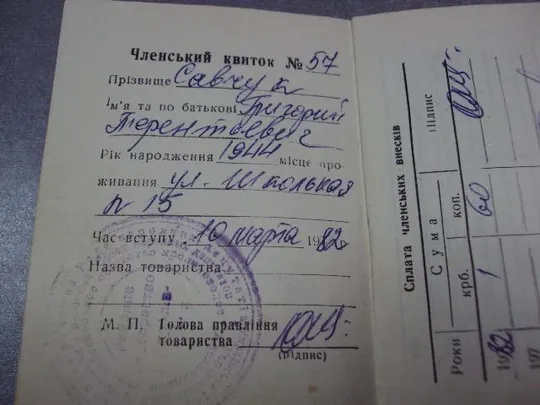 Членський квиток № 57
Прізвище Савчук
Ім'я та по батькові Григорий
Терентьевич
Рік народження 1944 місце про-
живання ул. Школьная
15
Час вступу 10 марта 1982
Назва товариства
М. П. Голова правління
товариства
(підпис)
Сплата членських внесків
Роки
Сума
крб.
коп.
Підпис
1982
1
60
197